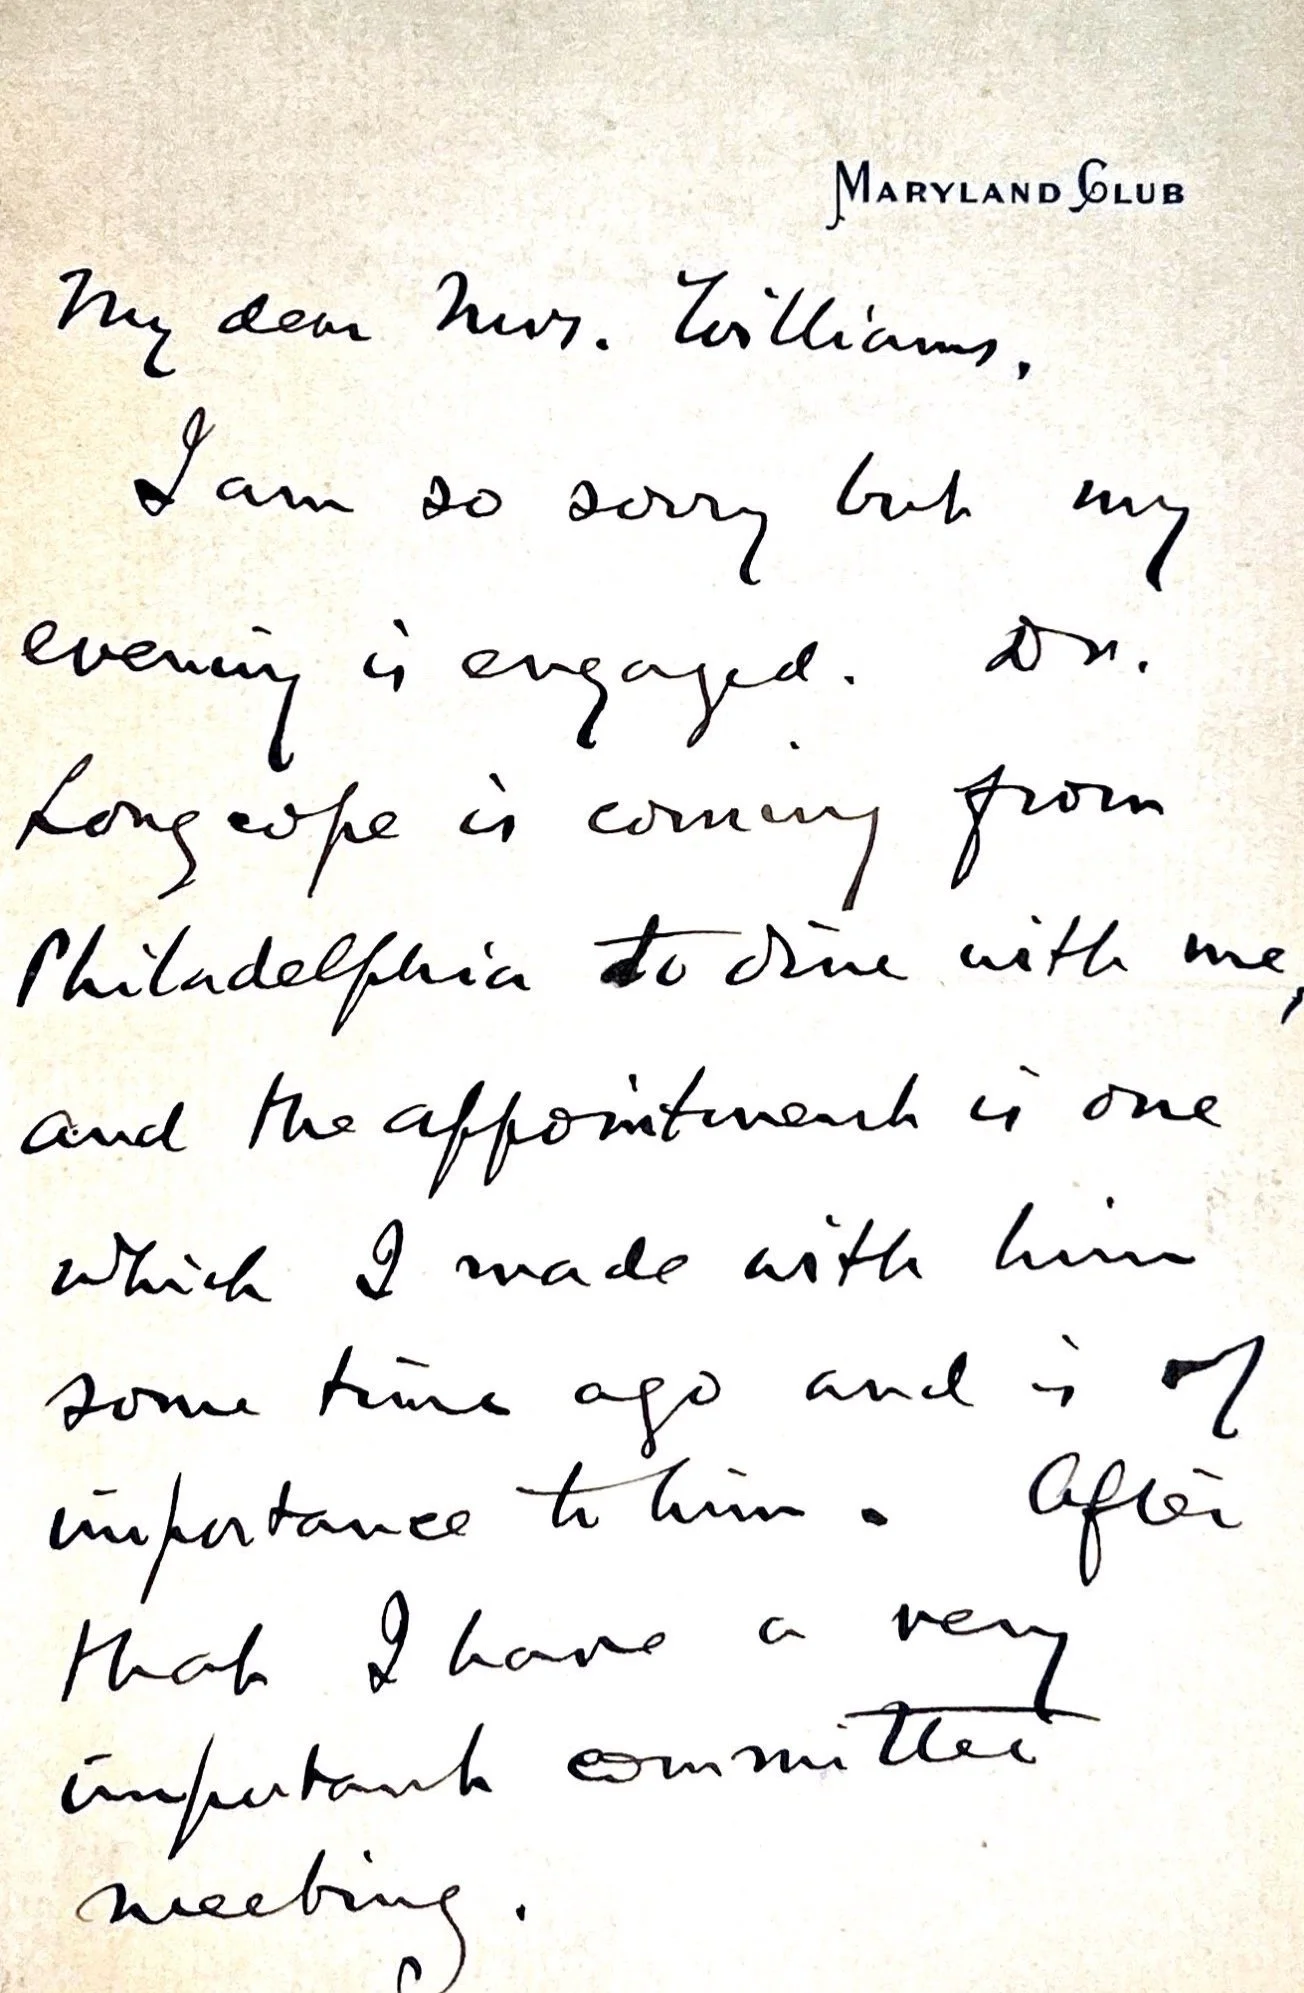 MARYLAND CLUB
My dear Mrs. Williams,
I am so sorry but my
evening is engaged. Dr.
Longcope is coming from
Philadelphia to dine with me,
and the appointment is one
which I made with him
some time ago and is of
importance to him. After
that I have a very
important committee
meeting.